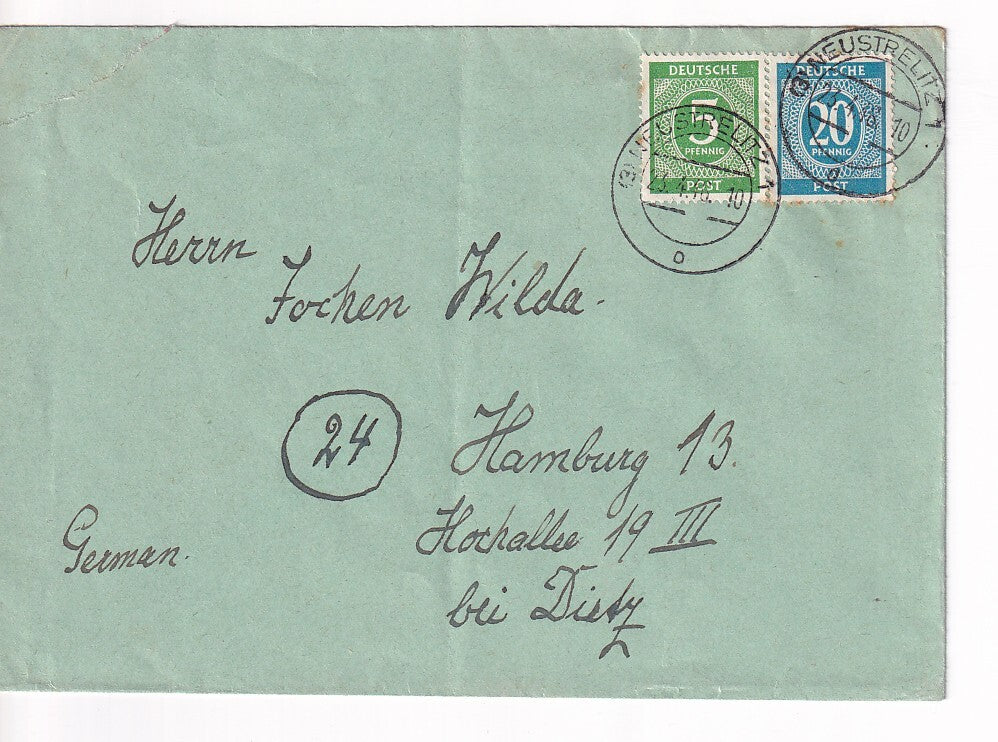 DEUTSCHE
5
PFENNIG
POST
DEUTSCHE
20
PFENNIG
POST
(3) NEUSTRELITZ 1
10
o
(3) NEUSTRELITZ 1
10
Herrn
Jochen Wilda.
24
Hamburg 13.
Hochallee 19 III
bei Dietz
German.